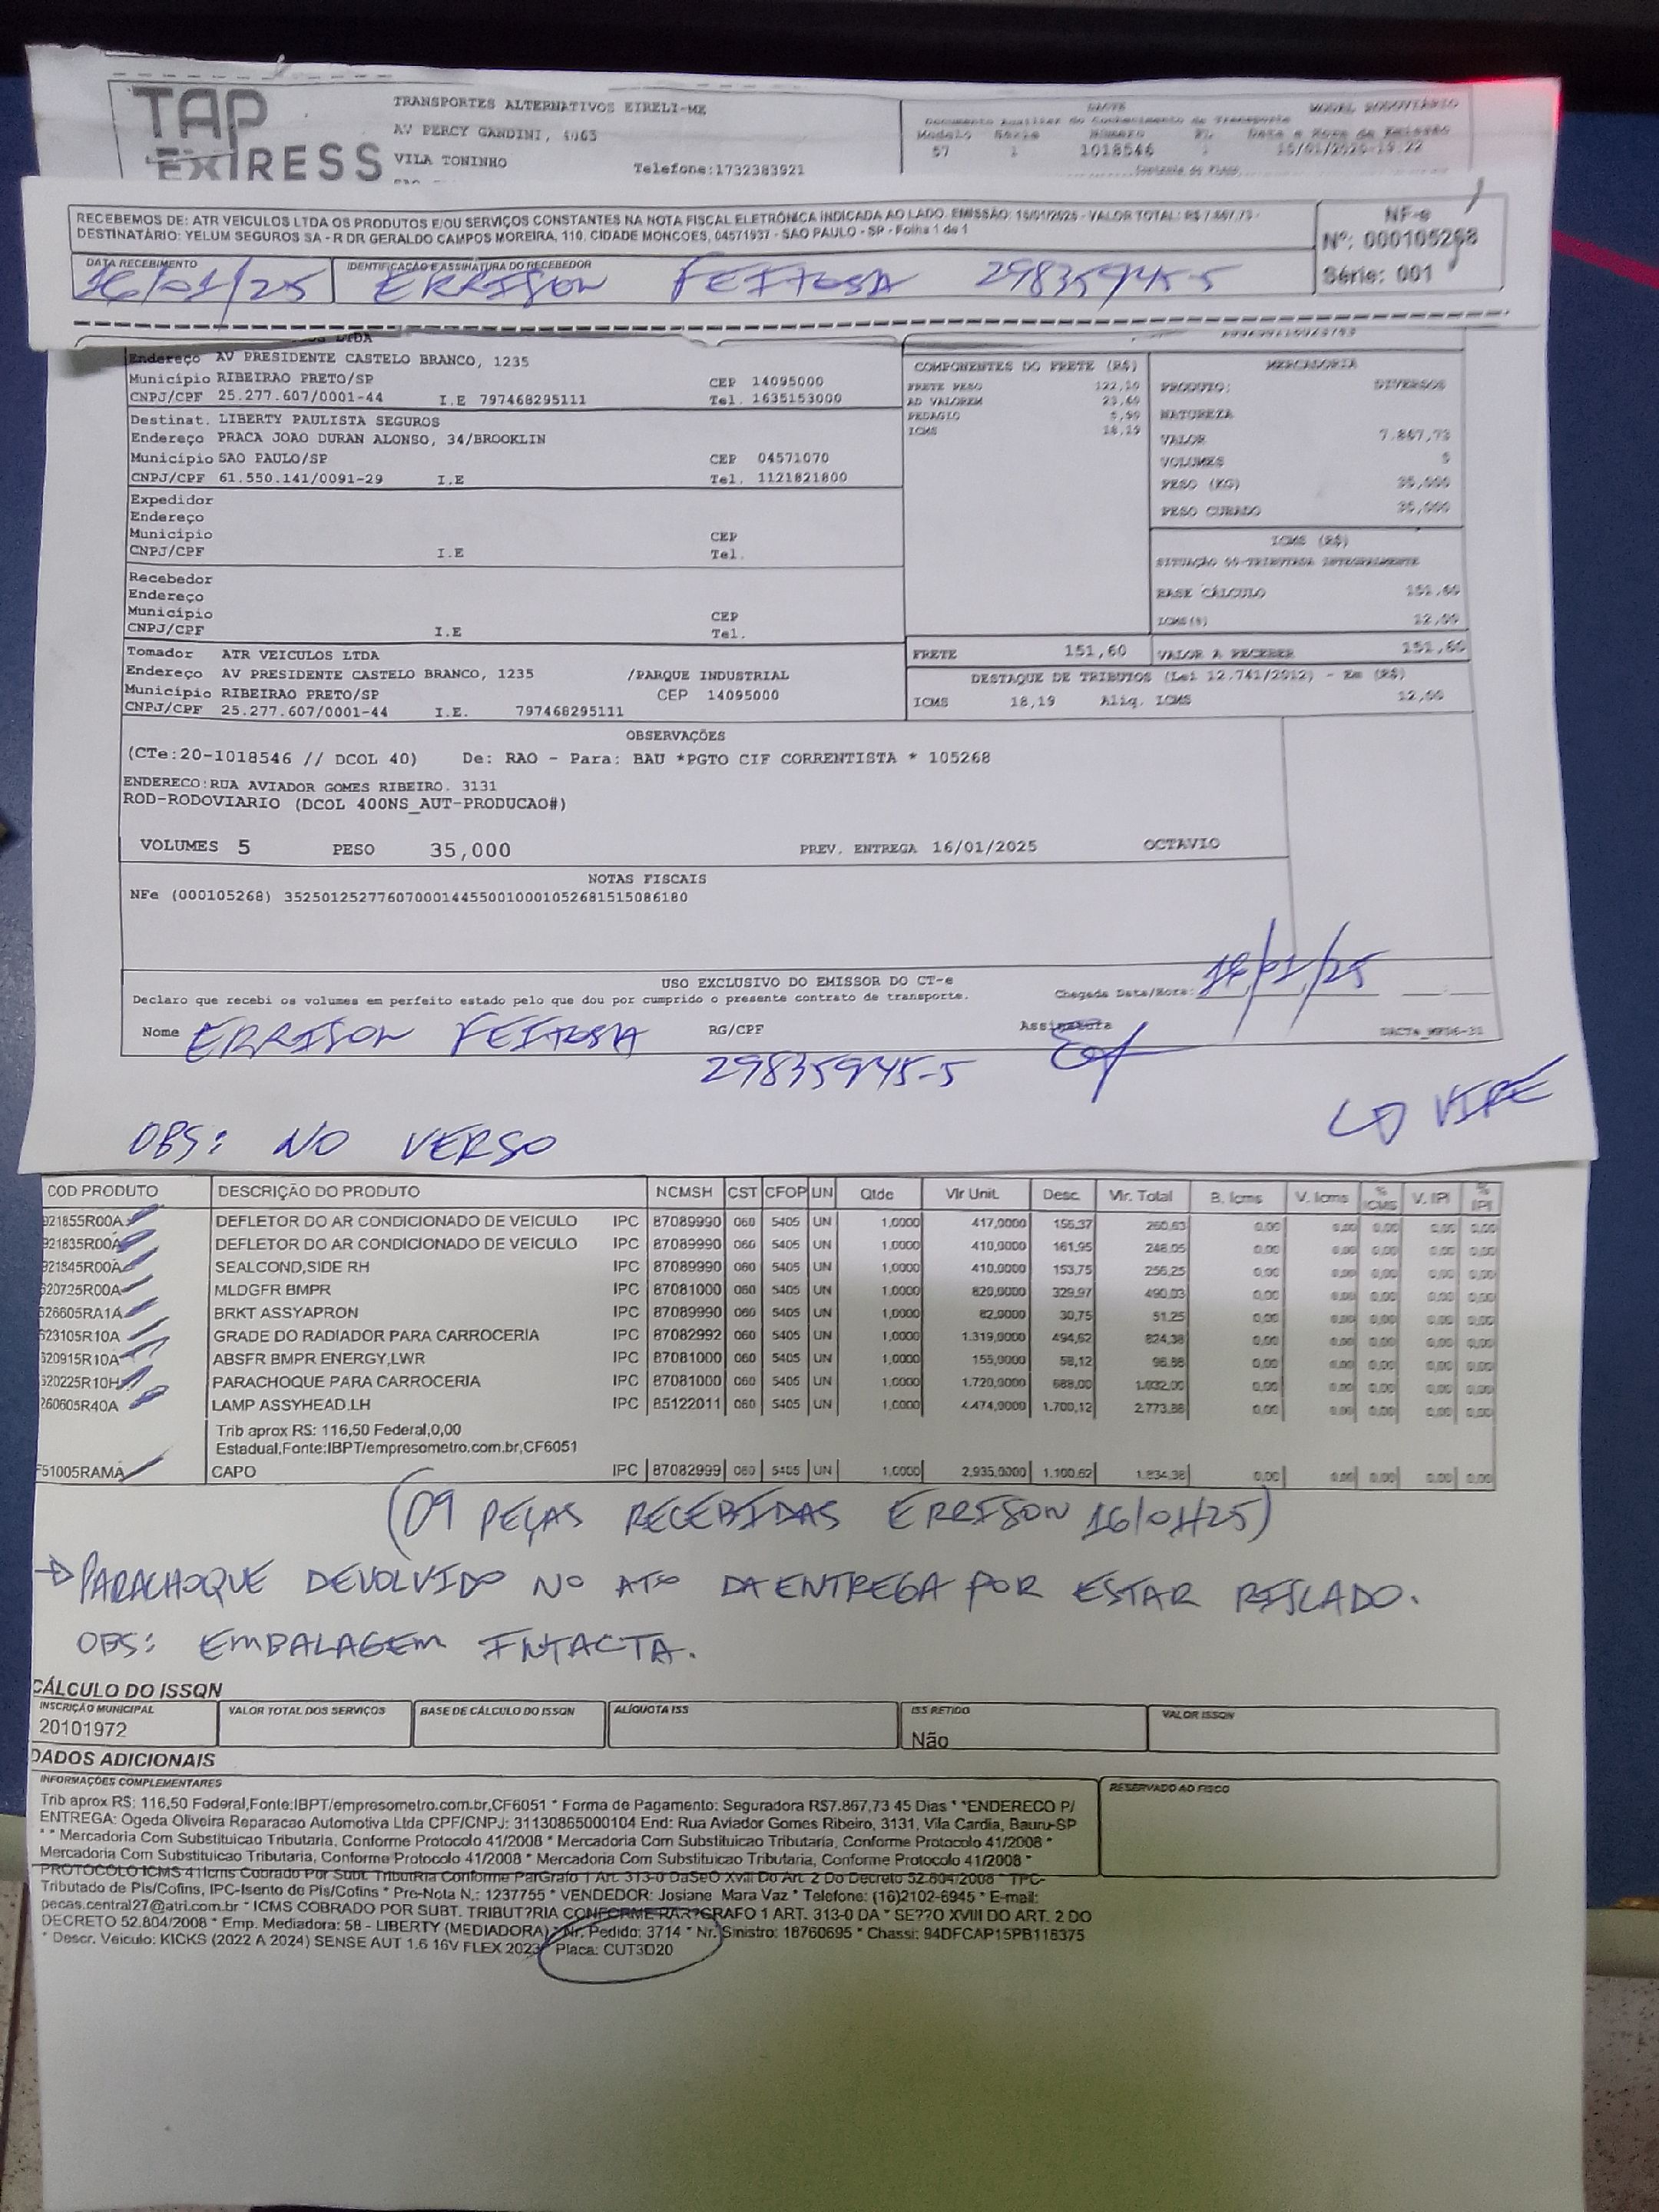 TAP
EXPRESS
TRANSPORTES ALTERNATIVOS EIRELI-ME
AV PERCY GANDINI, 4063
VILA TONINHO
Telefone:1732383921
DACTE
MODAL RODOVIÁRIO
Documento Auxiliar do Conhecimento de Transporte
Modelo Série Número FL Data e Hora de Emissão
57 1 1018546
RECEBEMOS DE: ATR VEICULOS LTDA OS PRODUTOS E/OU SERVIÇOS CONSTANTES NA NOTA FISCAL ELETRÔNICA INDICADA AO LADO. EMISSÃO: 15/01/2025 - VALOR TOTAL: R$ 7.867,73 -
DESTINATÁRIO: YELUM SEGUROS SA - R DR GERALDO CAMPOS MOREIRA, 110, CIDADE MONCOES, 04571937 - SAO PAULO - SP - Folha 1 de 1
NF-e
Nº: 000105268
Série: 001
DATA RECEBIMENTO
IDENTIFICAÇÃO E ASSINATURA DO RECEBEDOR
16/01/25 ERRISON FEITOSA 29835945-5
LTDA
Endereço AV PRESIDENTE CASTELO BRANCO, 1235
Município RIBEIRAO PRETO/SP CEP 14095000
CNPJ/CPF 25.277.607/0001-44 I.E 797468295111 Tel. 1635153000
Destinat. LIBERTY PAULISTA SEGUROS
Endereço PRACA JOAO DURAN ALONSO, 34/BROOKLIN
Município SAO PAULO/SP CEP 04571070
CNPJ/CPF 61.550.141/0091-29 I.E Tel. 1121821800
Expedidor
Endereço
Município CEP
CNPJ/CPF I.E Tel.
Recebedor
Endereço
Município CEP
CNPJ/CPF I.E Tel.
Tomador ATR VEICULOS LTDA
Endereço AV PRESIDENTE CASTELO BRANCO, 1235 /PARQUE INDUSTRIAL
Município RIBEIRAO PRETO/SP CEP 14095000
CNPJ/CPF 25.277.607/0001-44 I.E. 797468295111
COMPONENTES DO FRETE (R$)
FRETE PESO 122,10
AD VALOREM 23,60
PEDAGIO 5,90
ICMS 18,19
MERCADORIA
PRODUTO: DIVERSOS
NATUREZA
VALOR 7.867,73
VOLUMES 5
PESO (KG) 35,000
PESO CUBADO 35,000
ICMS (R$)
SITUAÇÃO 00-TRIBUTADA INTEGRALMENTE
BASE CÁLCULO 151,60
ICMS(%) 12,00
FRETE 151,60 VALOR A RECEBER 151,60
DESTAQUE DE TRIBUTOS (Lei 12.741/2012) - Em (R$)
ICMS 18,19 Aliq. ICMS 12,00
OBSERVAÇÕES
(CTe:20-1018546 // DCOL 40) De: RAO - Para: BAU *PGTO CIF CORRENTISTA * 105268
ENDERECO:RUA AVIADOR GOMES RIBEIRO. 3131
ROD-RODOVIARIO (DCOL 400NS_AUT-PRODUCAO#)
VOLUMES 5 PESO 35,000 PREV. ENTREGA 16/01/2025 OCTAVIO
NOTAS FISCAIS
NFe (000105268) 35250125277607000144550010001052681515086180
USO EXCLUSIVO DO EMISSOR DO CT-e
Declaro que recebi os volumes em perfeito estado pelo que dou por cumprido o presente contrato de transporte.
Chegada Data/Hora: 16/01/25
Nome ERRISON FEITOSA RG/CPF Assinatura
29835945-5
OBS: NO VERSO
VIRE
COD PRODUTO DESCRIÇÃO DO PRODUTO NCMSH CST CFOP UN Qtde Vlr Unit. Desc. Vlr. Total B. Icms V. Icms % ICMS V. IPI % IPI
921855R00A DEFLETOR DO AR CONDICIONADO DE VEICULO IPC 87089990 060 5405 UN 1,0000 417,0000 156,37 260,63 0,00 0,00 0,00 0,00 0,00
921835R00A DEFLETOR DO AR CONDICIONADO DE VEICULO IPC 87089990 060 5405 UN 1,0000 410,0000 161,95 248,05 0,00 0,00 0,00 0,00 0,00
921845R00A SEALCOND,SIDE RH IPC 87089990 060 5405 UN 1,0000 410,0000 153,75 256,25 0,00 0,00 0,00 0,00 0,00
620725R00A MLDGFR BMPR IPC 87081000 060 5405 UN 1,0000 820,0000 329,97 490,03 0,00 0,00 0,00 0,00 0,00
626605RA1A BRKT ASSYAPRON IPC 87089990 060 5405 UN 1,0000 82,0000 30,75 51,25 0,00 0,00 0,00 0,00 0,00
623105R10A GRADE DO RADIADOR PARA CARROCERIA IPC 87082992 060 5405 UN 1,0000 1.319,0000 494,62 824,38 0,00 0,00 0,00 0,00 0,00
620915R10A ABSFR BMPR ENERGY,LWR IPC 87081000 060 5405 UN 1,0000 155,0000 58,12 96,88 0,00 0,00 0,00 0,00 0,00
620225R10H PARACHOQUE PARA CARROCERIA IPC 87081000 060 5405 UN 1,0000 1.720,0000 688,00 1.032,00 0,00 0,00 0,00 0,00 0,00
260605R40A LAMP ASSYHEAD,LH IPC 85122011 060 5405 UN 1,0000 4.474,0000 1.700,12 2.773,88 0,00 0,00 0,00 0,00 0,00
Trib aprox RS: 116,50 Federal,0,00
Estadual,Fonte:IBPT/empresometro.com.br,CF6051
F51005RAMA CAPO IPC 87082999 060 5405 UN 1,0000 2.935,0000 1.100,62 1.834,38 0,00 0,00 0,00 0,00 0,00
(09 PEÇAS RECEBIDAS ERRISON 16/01/25)
→ PARACHOQUE DEVOLVIDO NO ATO DA ENTREGA POR ESTAR RISCADO.
OBS: EMBALAGEM INTACTA.
CÁLCULO DO ISSQN
INSCRIÇÃO MUNICIPAL VALOR TOTAL DOS SERVIÇOS BASE DE CÁLCULO DO ISSQN ALÍQUOTA ISS ISS RETIDO VALOR ISSQN
20101972 Não
DADOS ADICIONAIS
INFORMAÇÕES COMPLEMENTARES RESERVADO AO FISCO
Trib aprox RS: 116,50 Federal,Fonte:IBPT/empresometro.com.br,CF6051 * Forma de Pagamento: Seguradora R$7.867,73 45 Dias * *ENDERECO P/
ENTREGA: Ogeda Oliveira Reparacao Automotiva Ltda CPF/CNPJ: 31130865000104 End: Rua Aviador Gomes Ribeiro, 3131, Vila Cardia, Bauru-SP
* * Mercadoria Com Substituicao Tributaria, Conforme Protocolo 41/2008 * Mercadoria Com Substituicao Tributaria, Conforme Protocolo 41/2008 *
Mercadoria Com Substituicao Tributaria, Conforme Protocolo 41/2008 * Mercadoria Com Substituicao Tributaria, Conforme Protocolo 41/2008 *
PROTOCOLO ICMS 41Icms Cobrado Por Subt. TributRia Conforme ParGrafo 1 Art. 313-0 DaSeO Xviii Do Art. 2 Do Decreto 52.804/2008 * TPC-
Tributado de Pis/Cofins, IPC-Isento de Pis/Cofins * Pre-Nota N.: 1237755 * VENDEDOR: Josiane Mara Vaz * Telefone: (16)2102-6945 * E-mail:
pecas.central27@atri.com.br * ICMS COBRADO POR SUBT. TRIBUT?RIA CONFORME PAR?GRAFO 1 ART. 313-0 DA * SE??O XVIII DO ART. 2 DO
DECRETO 52.804/2008 * Emp. Mediadora: 58 - LIBERTY (MEDIADORA) * Nr. Pedido: 3714 * Nr. Sinistro: 18760695 * Chassi: 94DFCAP15PB118375
* Descr. Veiculo: KICKS (2022 A 2024) SENSE AUT 1.6 16V FLEX 2023 * Placa: CUT3D20